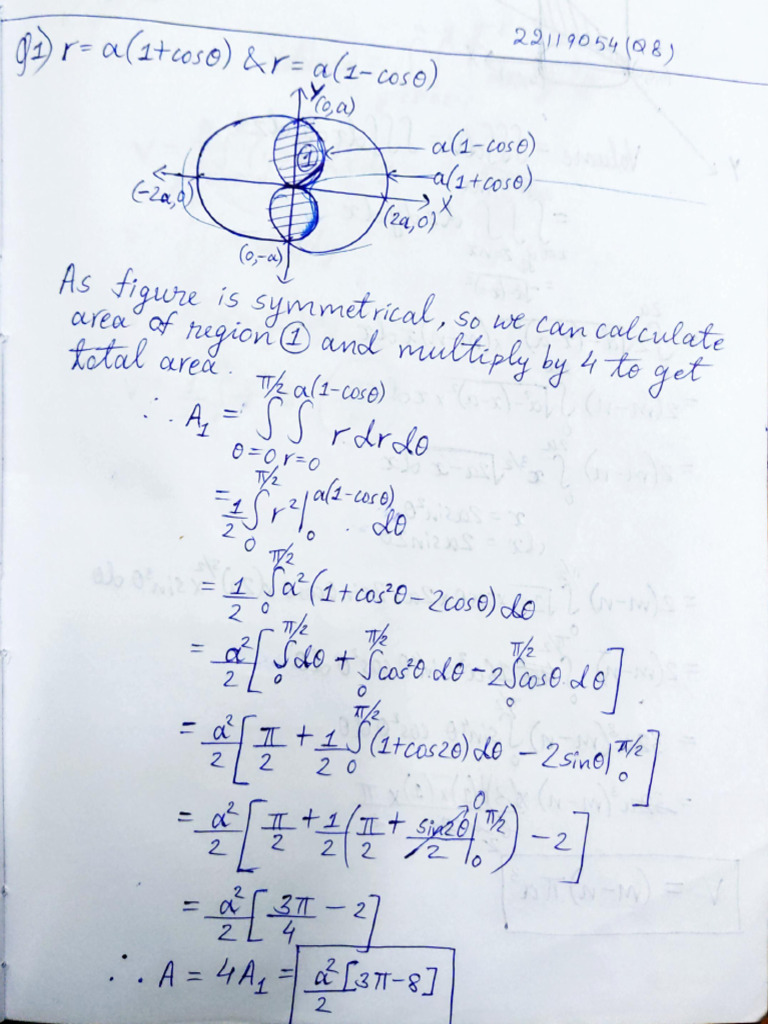 22119054(Q8)
Q1) r = a(1+cosθ) & r = a(1-cosθ)
Y
(0,a)
1
a(1-cosθ)
a(1+cosθ)
(-2a,0)
(2a,0)
X
(0,-a)
As figure is symmetrical, so we can calculate
area of region ① and multiply by 4 to get
total area.
∴ A₁ = ∫_{θ=0}^{π/2} ∫_{r=0}^{a(1-cosθ)} r dr dθ
= 1/2 ∫_0^{π/2} r²|_0^{a(1-cosθ)} . dθ
= 1/2 ∫_0^{π/2} a²(1+cos²θ-2cosθ) dθ
= a²/2 [∫_0^{π/2} dθ + ∫_0^{π/2} cos²θ dθ - 2∫_0^{π/2} cosθ dθ]
= a²/2 [π/2 + 1/2 ∫_0^{π/2} (1+cos2θ) dθ - 2sinθ|_0^{π/2}]
= a²/2 [π/2 + 1/2 (π/2 + sin2θ/2|_0^{π/2} 0) - 2]
= a²/2 [3π/4 - 2]
∴ A = 4A₁ = a²/2 [3π-8]